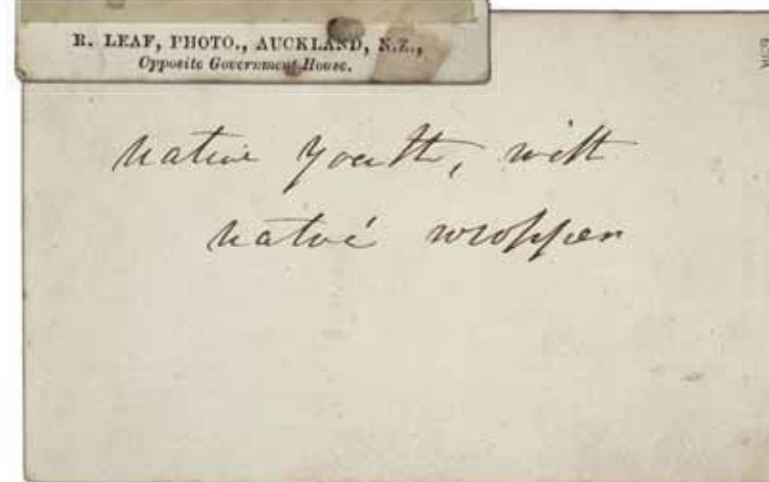 R. LEAF, PHOTO., AUCKLAND, N.Z.,
Opposite Government House.
native youth, with
native wropper